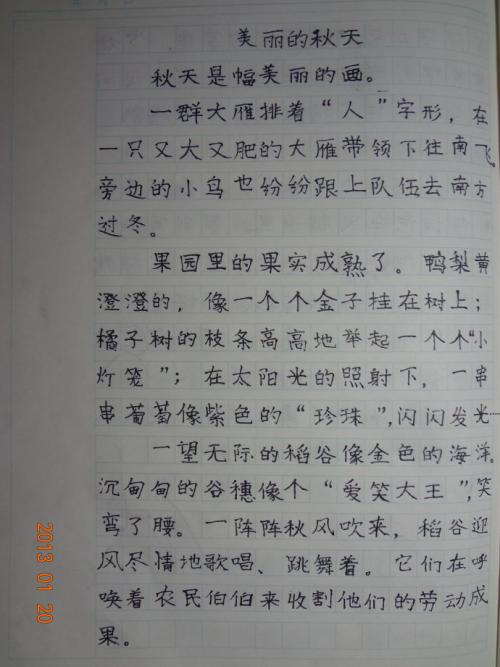 美丽的秋天
秋天是幅美丽的画。
一群大雁排着“人”字形，在
一只又大又肥的大雁带领下往南飞。
旁边的小鸟也纷纷跟上队伍去南方
过冬。
果园里的果实成熟了。鸭梨黄
澄澄的，像一个个金子挂在树上；
橘子树的枝条高高地举起一个个“小
灯笼”；在太阳光的照射下，一串
串葡萄像紫色的“珍珠”，闪闪发光……
一望无际的稻谷像金色的海洋。
沉甸甸的谷穗像个“爱笑大王”，笑
弯了腰。一阵阵秋风吹来，稻谷迎
风尽情地歌唱、跳舞着。它们在呼
唤着农民伯伯来收割他们的劳动成
果。
2013 01 20